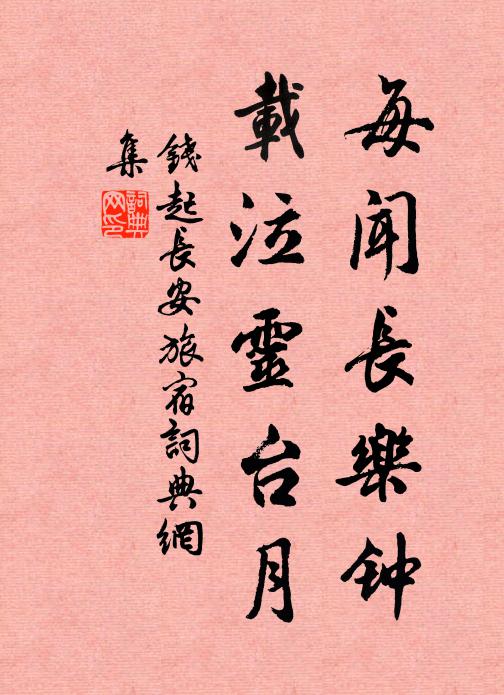 每闻長樂钟
載泣靈台月
錢起長安旅宿詞典網
集
詞典网印